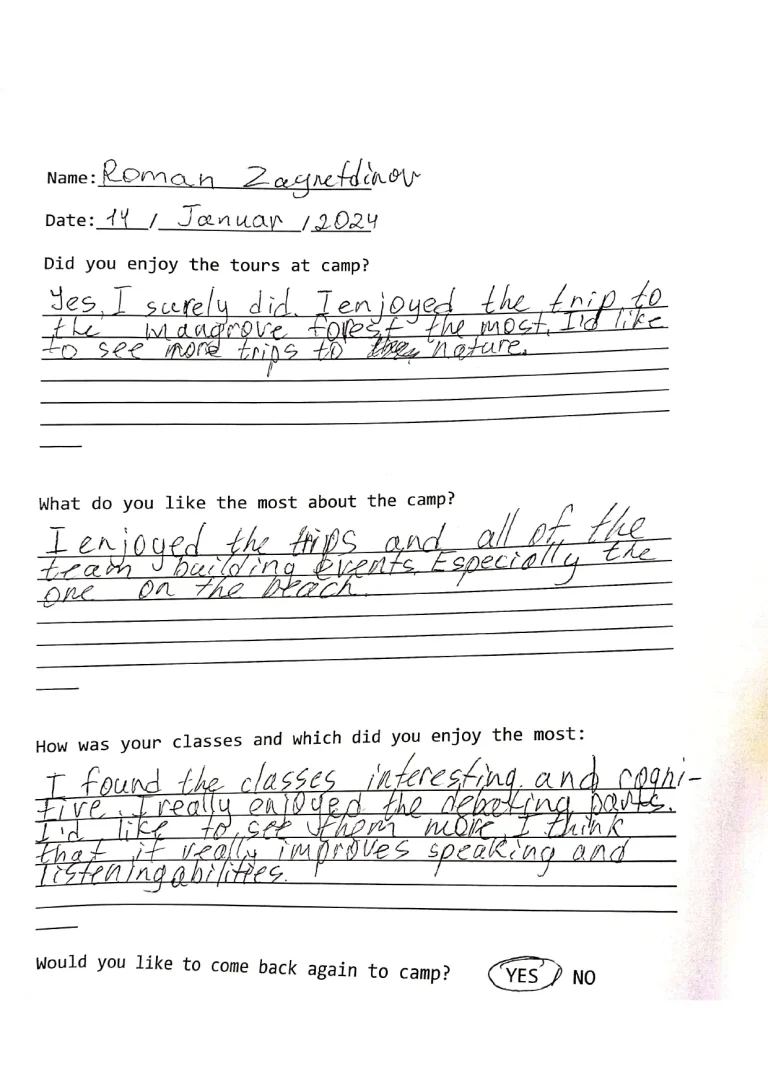 Name: Roman Zagretdinov
Date: 14 / Januar / 2024
Did you enjoy the tours at camp?
Yes, I surely did. I enjoyed the trip to
the mangrove forest the most, I'd like
to see more trips to nature.
What do you like the most about the camp?
I enjoyed the trips and all of the
team building events. Especially the
one on the beach.
How was your classes and which did you enjoy the most:
I found the classes interesting and cogni-
tive. I really enjoyed the debating parts.
I'd like to see them more, I think
that it really improves speaking and
listening abilities.
Would you like to come back again to camp? YES NO